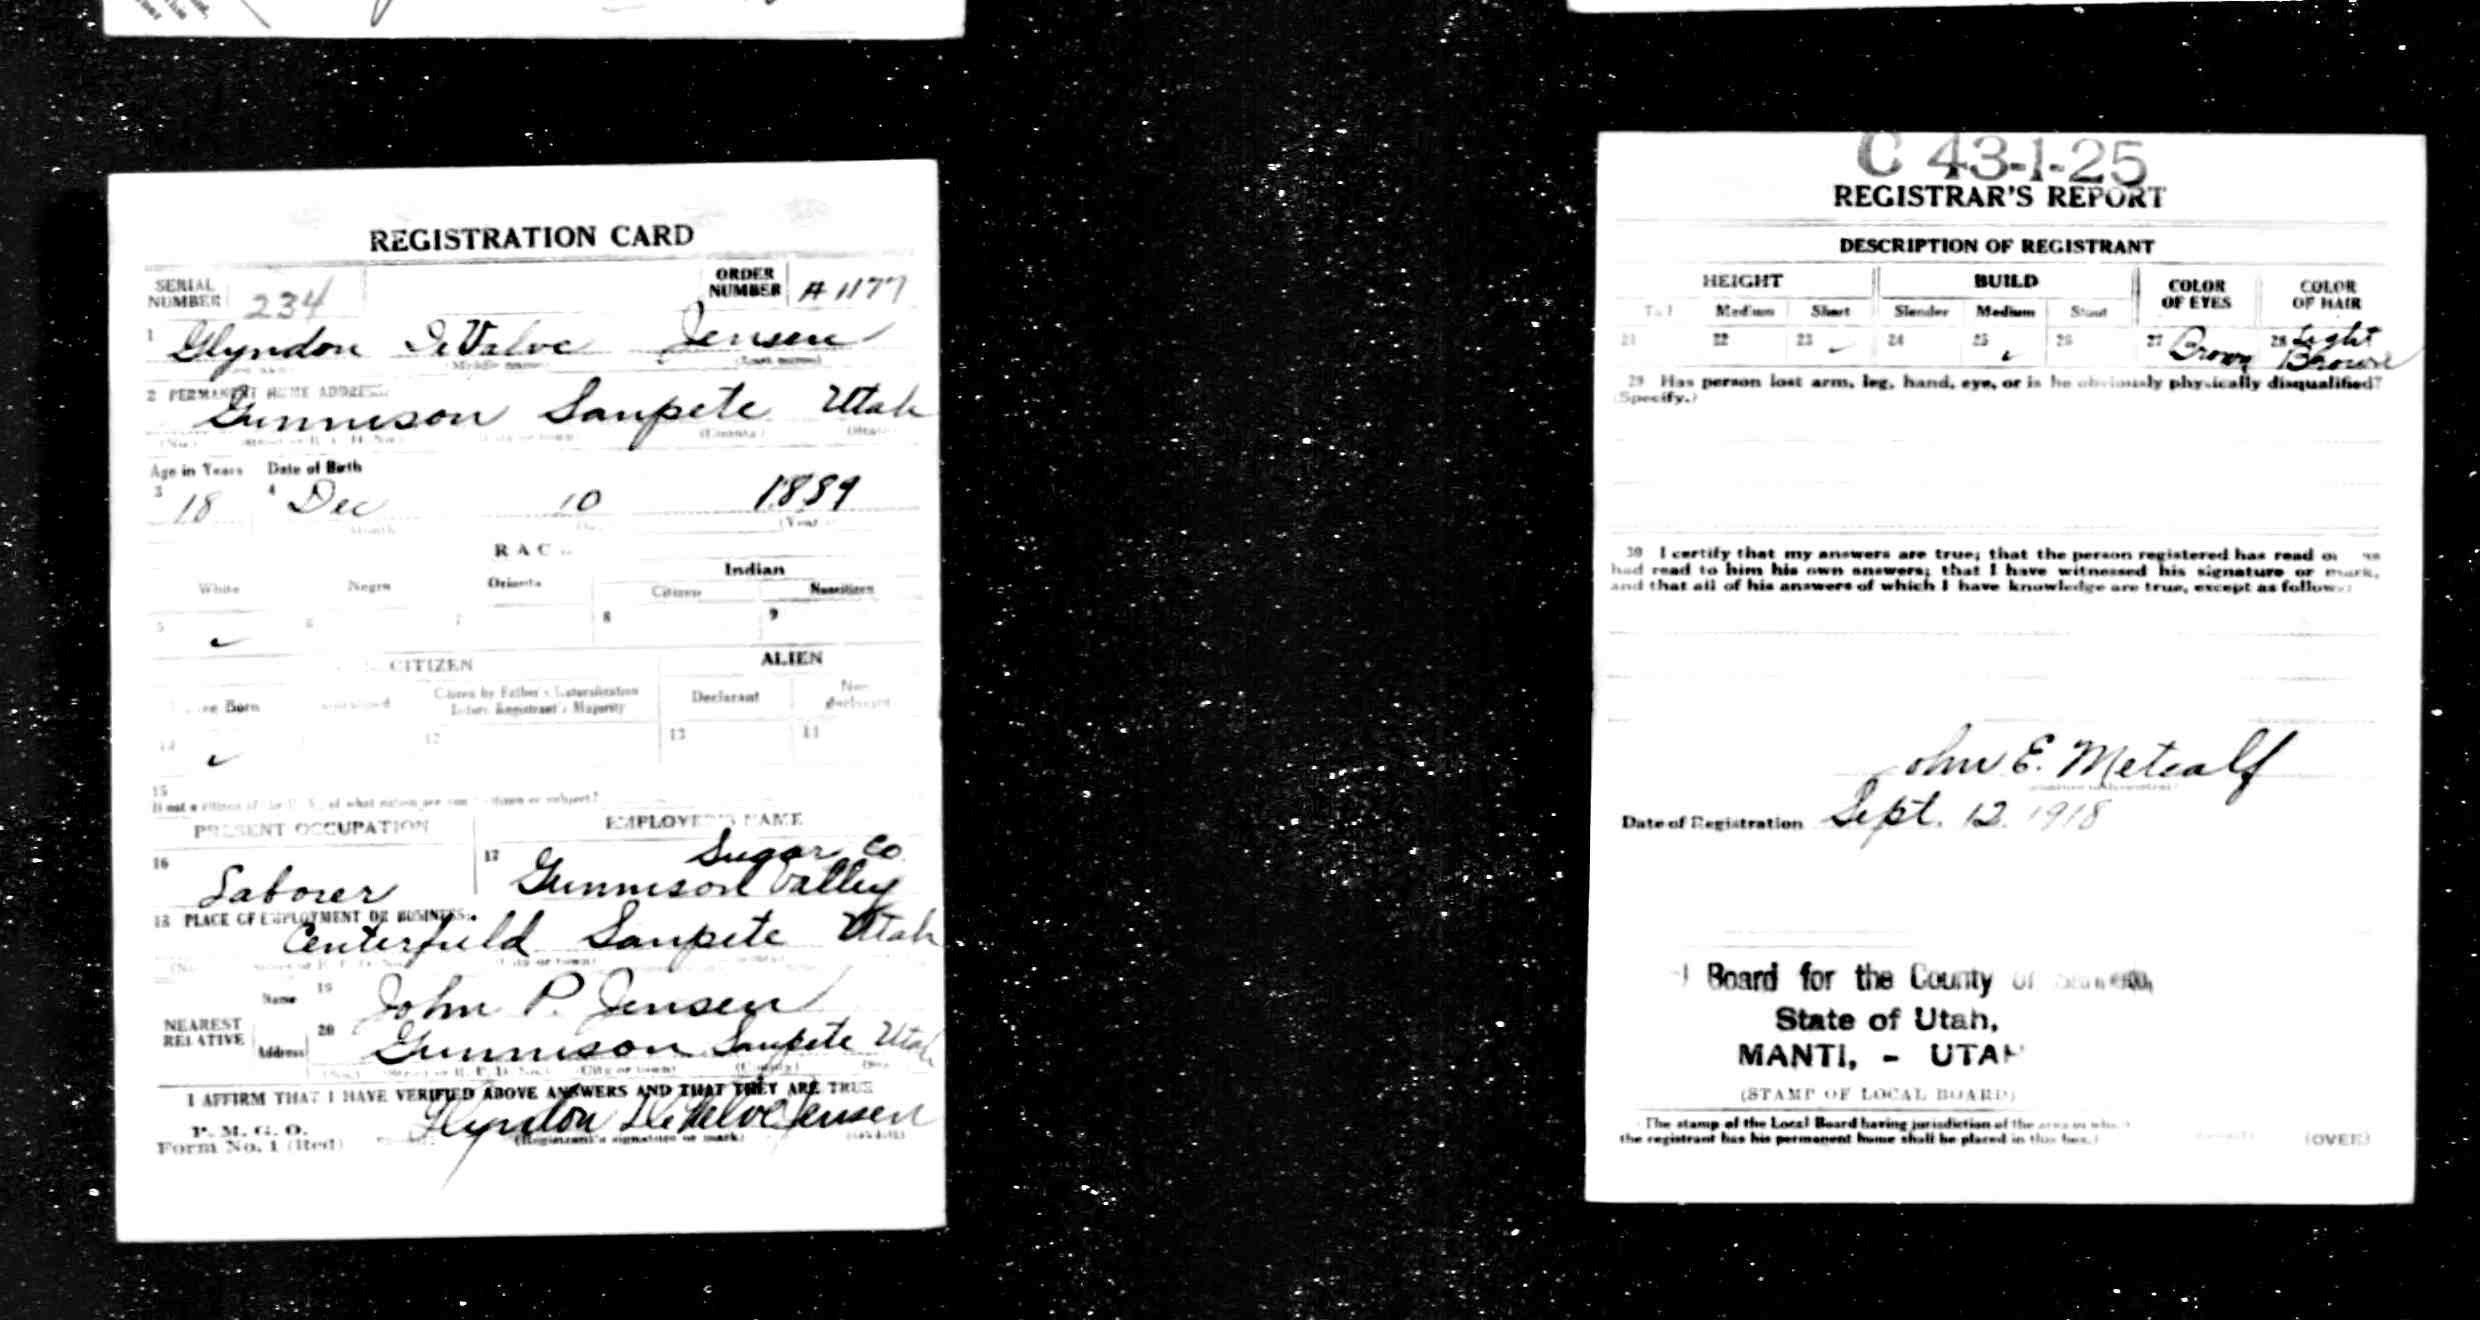 REGISTRATION CARD
SERIAL NUMBER 234
ORDER NUMBER A 1177
1 Glyndon DeValve Jensen
(Middle name) (Last name)
2 PERMANENT HOME ADDRESS
Gunnison Sanpete Utah
(No.) (County) (State)
Age in Years Date of Birth
3 18 4 Dec 10 1889
Month (Year)
RACE
Indian
White Negro Oriental Citizen Noncitizen
5 ✓ 6 7 8 9
CITIZEN ALIEN
Born Citizen by Father's Naturalization Before Registrant's Majority Declarant Non-declarant
10 ✓ 12 13 14
15
If not a citizen of the U. S., of what nation are you a citizen or subject?
PRESENT OCCUPATION EMPLOYER'S NAME
16 Laborer 17 Gunnison Valley Sugar Co
18 PLACE OF EMPLOYMENT OR BUSINESS:
Centerfield Sanpete Utah
(No.) (City or town)
NEAREST RELATIVE
Name 19 John P. Jensen
Address 20 Gunnison Sanpete Utah
(No.) (Street or R. F. D. No.) (City or town) (County) (State)
I AFFIRM THAT I HAVE VERIFIED ABOVE ANSWERS AND THAT THEY ARE TRUE
P. M. G. O.
Form No. 1 (Red)
Glyndon DeValve Jensen
(Registrant's signature or mark) (OVER)
C 43-1-25
REGISTRAR'S REPORT
DESCRIPTION OF REGISTRANT
HEIGHT BUILD COLOR OF EYES COLOR OF HAIR
Tall Medium Short Slender Medium Stout
21 22 23 ✓ 24 25 ✓ 26 27 Brown 28 Light Brown
29 Has person lost arm, leg, hand, eye, or is he obviously physically disqualified?
(Specify.)
30 I certify that my answers are true; that the person registered has read or has
had read to him his own answers; that I have witnessed his signature or mark,
and that all of his answers of which I have knowledge are true, except as follows:
John E. Metcalf
Date of Registration Sept. 12. 1918
Board for the County of Sanpete,
State of Utah,
MANTI, - UTAH
(STAMP OF LOCAL BOARD)
(The stamp of the Local Board having jurisdiction of the area in which
the registrant has his permanent home shall be placed in this box.)
(OVER)